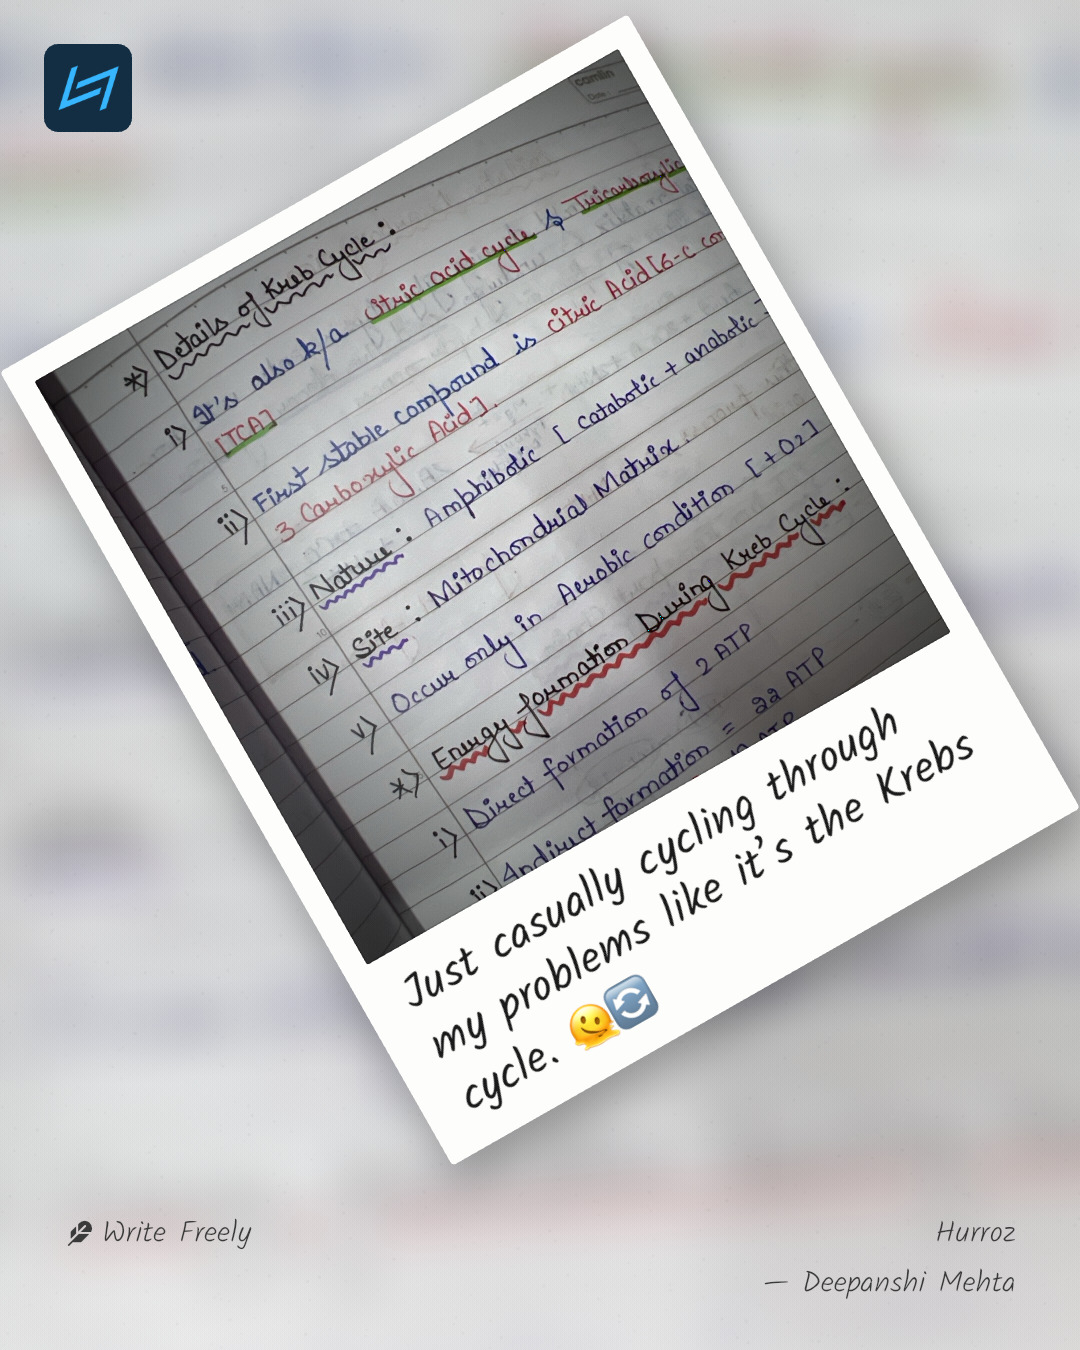 camlin
Date :
*) Details of Kreb Cycle :
i) It's also k/a citric acid cycle & Tricarboxylic
[TCA]
ii) First stable compound is citric Acid [6-C
3 Carboxylic Acid].
iii) Nature : Amphibolic [ catabolic + anabolic
iv) Site : Mitochondrial Matrix.
v) Occur only in Aerobic condition [+O2]
*) Energy formation During Kreb Cycle :
i) Direct formation of 2 ATP
ii) Indirect formation = 22 ATP
ATP
Just casually cycling through
my problems like it's the Krebs
cycle. 🫠🔄
Write Freely
Hurroz
— Deepanshi Mehta